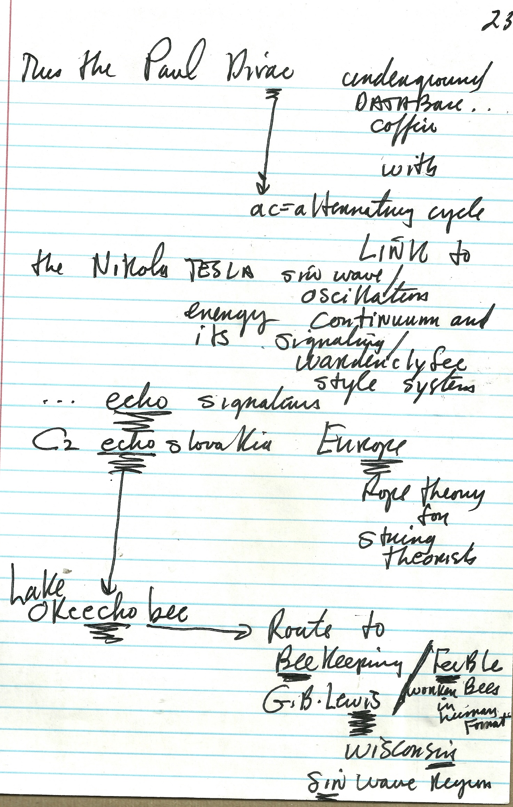 23
Thus the Paul Dirac
underground
DATABase..
coffin
with
ac=alternating cycle
LINK to
the Nikola TESLA sin wave/
oscillation
energy continuum and
its signaling/
wardenclyfee
style system
... echo signatures
Cz echo slovakia Europe
Rope theory
for
string
theorists
Lake
OKeechobee
Route to
BeeKeeping / FeeBle
G.B. Lewis worker Bees
in
human
Format
wisconsin
sin wave Region